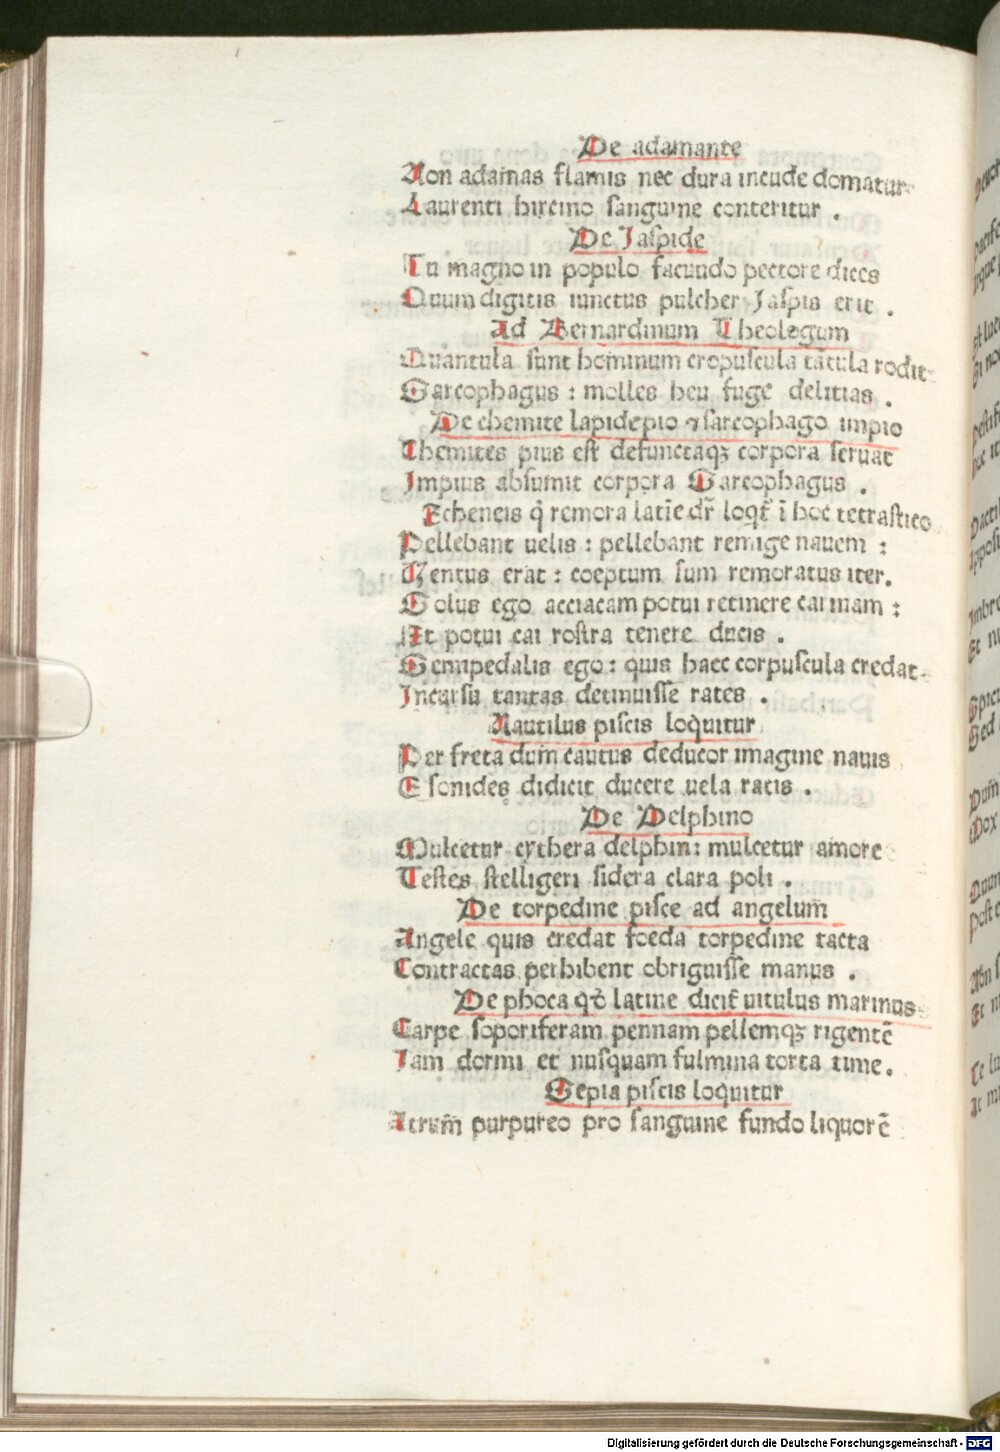 De adamante
Non adamas flamis nec dura incude domatur
Laurenti hircino sanguine conteritur .
De Jaspide
Tu magno in populo facundo pectore dices
Quum digitis iunctus pulcher Jaspis erit .
Ad Bernardinum Theologum
Quantula sunt hominum crepuscula tātula rodit
Sarcophagus : molles heu fuge delitias .
De chemite lapide pio ⁊ sarcophago impio
Chemites pius est defunctaqꝫ corpora seruat
Impius absumit corpora Sarcophagus .
Echeneis q̄ remora latīe dr̄ loqt̄ ī hoc tetrastico
Pellebant uelis : pellebant remige nauem :
Uentus erat : coeptum sum remoratus iter.
Solus ego acciacam potui retinere carinam :
At potui cai rostra tenere ducis .
Semipedalis ego : quis haec corpuscula credat
Incursu tantas detinuisse rates .
Nautilus piscis loquitur
Per freta dum cautus deducor imagine nauis
Esonides didicit ducere uela ratis .
De Delphino
Mulcetur cythera delphin : mulcetur amore
Testes stelligeri sidera clara poli .
De torpedine pisce ad angelum̄
Angele quis credat foeda torpedine tacta
Contractas perhibent obriguisse manus .
De phoca qđ latine dicit̄ uitulus marinus
Carpe soporiferam pennam pellemqꝫ rigentē
Iam dormi et nusquam fulmina torta time .
Sepia piscis loquitur
Atrum̄ purpureo pro sanguine fundo liquorē
Digitalisierung gefördert durch die Deutsche Forschungsgemeinschaft - DFG